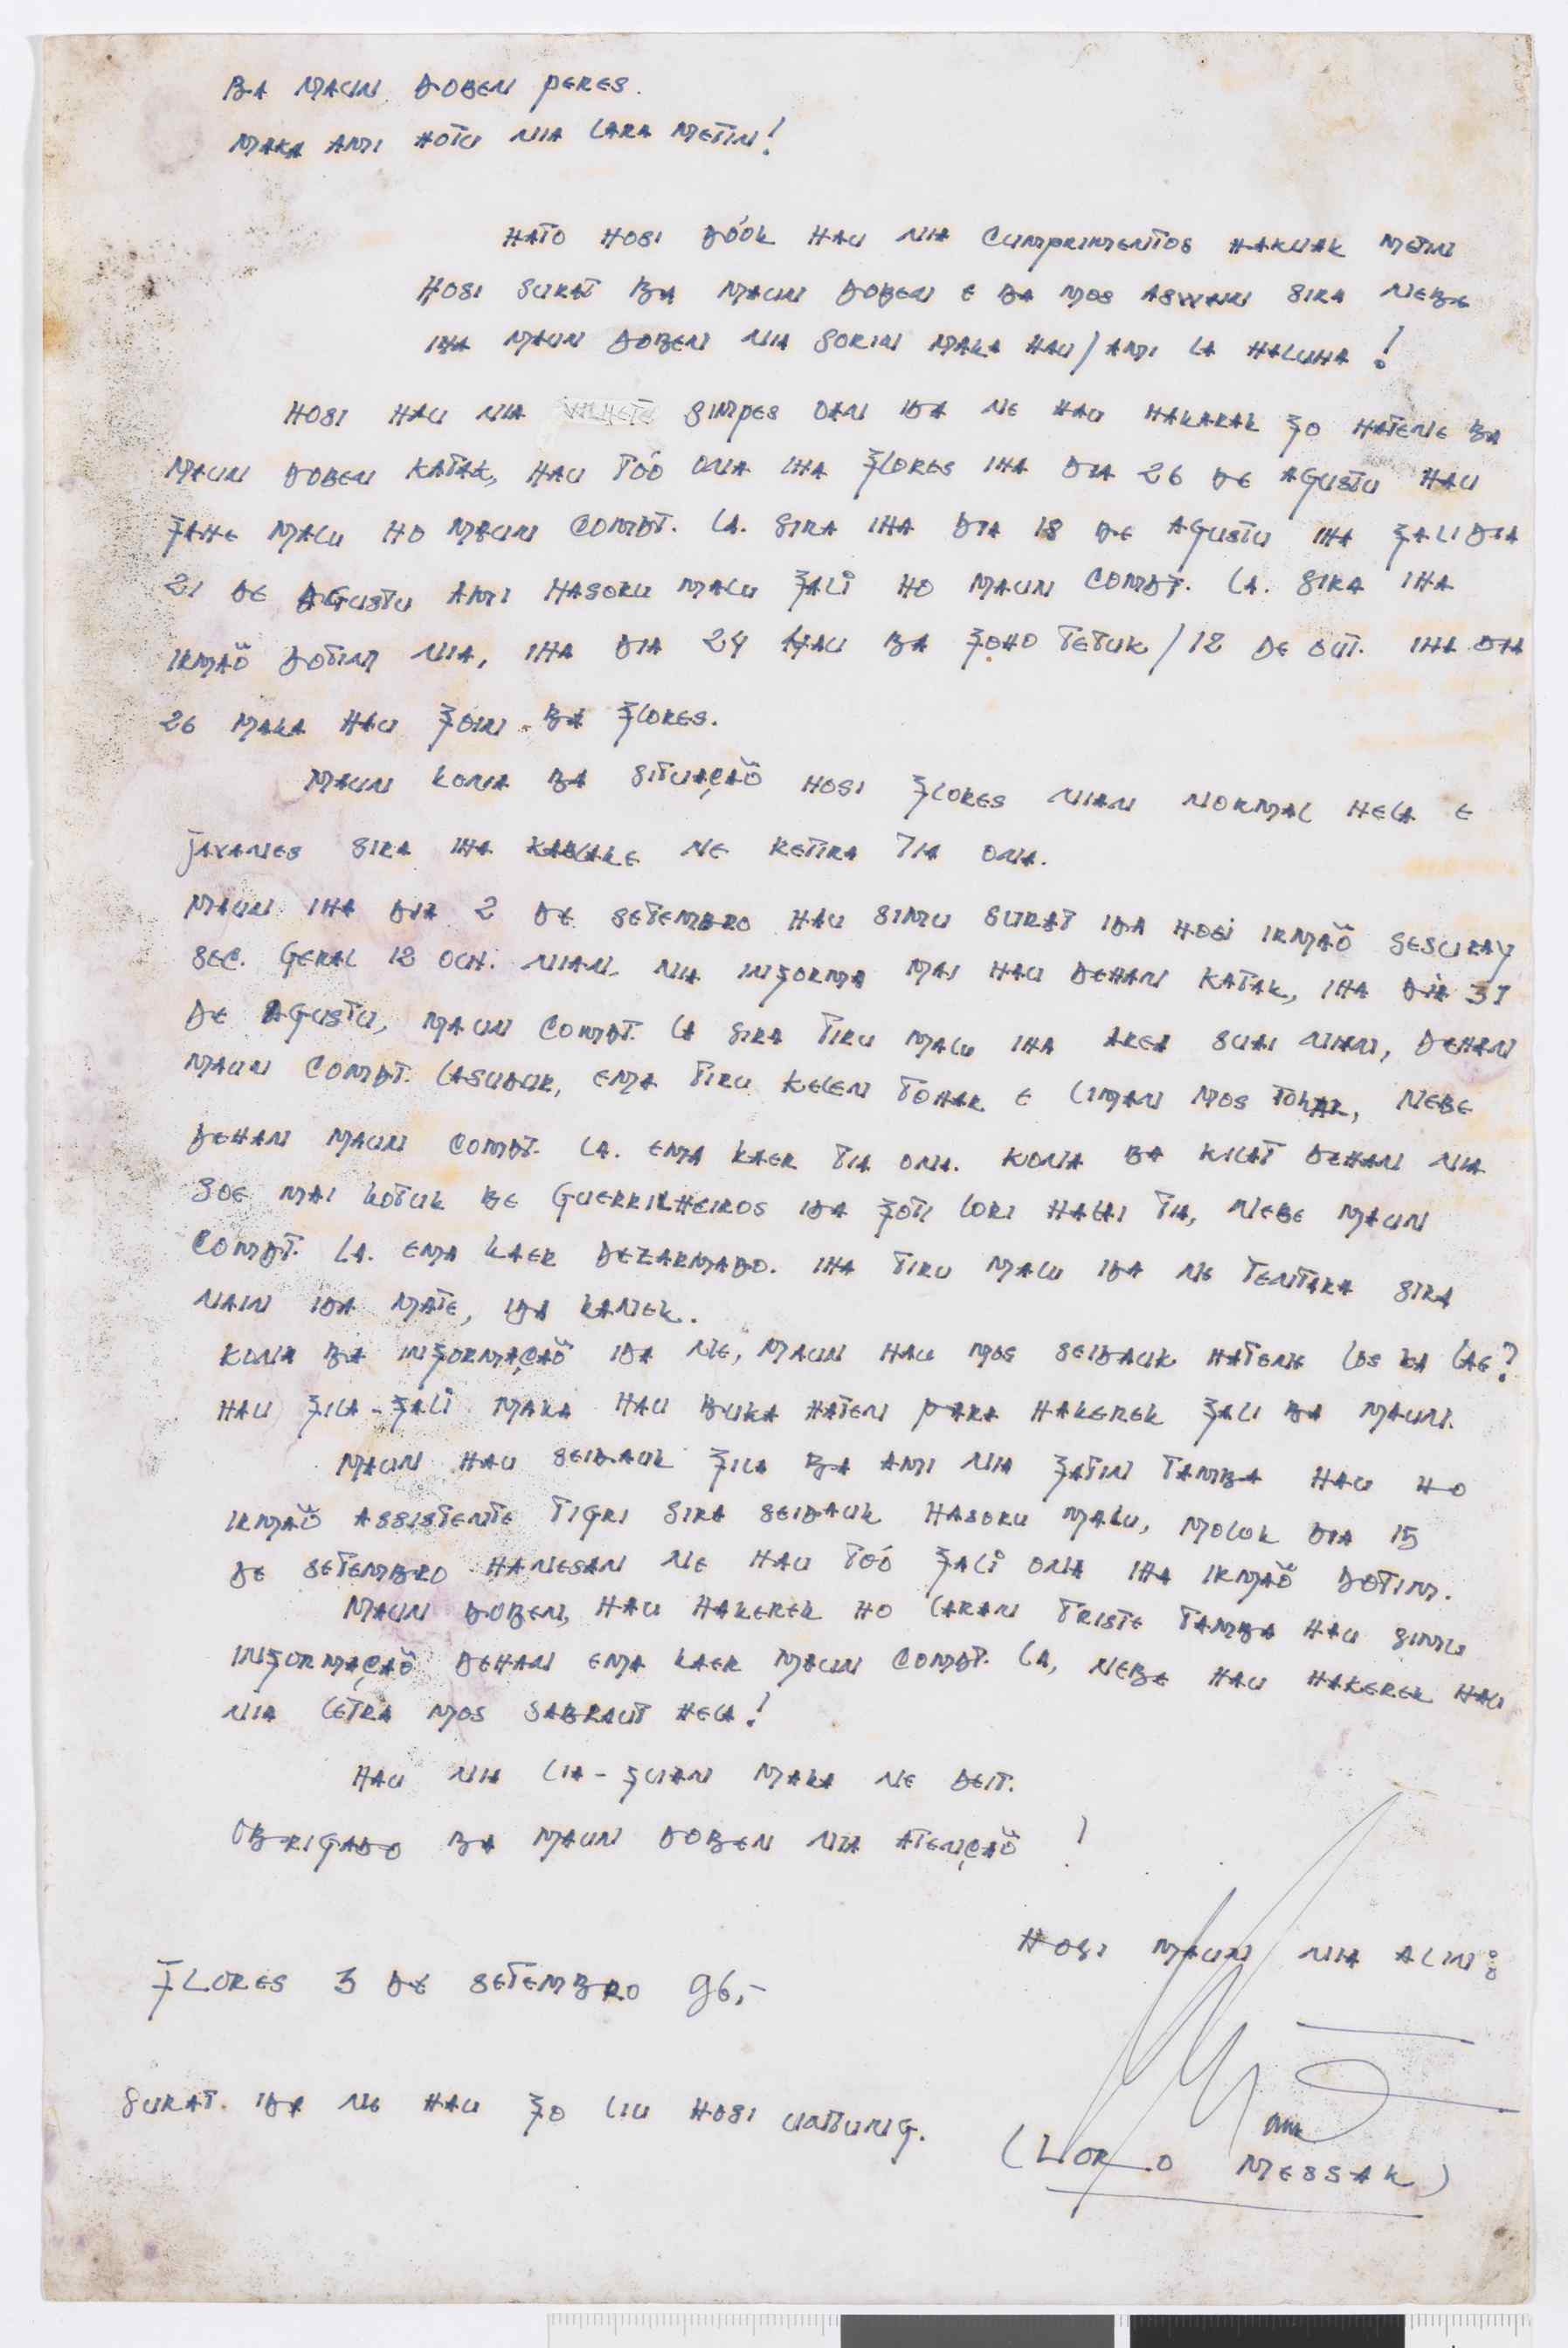 BA MAUN DOBEN PERES.
MAKA AMI HOTU NIA LARA METIN!
HATO HOSI DÓOK HAU NIA CUMPRIMENTOS HAKUAK METIN
HOSI SURAT BA MAUN DOBEN E BA MOS ASWAIN SIRA NEBE
IHA MAUN DOBEN NIA SORIN MAKA HAU/AMI LA HALUHA!
HOSI HAU NIA SIMPES OAN IDA NE HAU HAKARAK FO HATENE BA
MAUN DOBEN KATAK, HAU TÓO ONA IHA FLORES IHA DIA 26 DE AGUSTU HAU
FAHE MALU HO MAUN COMDT. LA. SIRA IHA DIA 18 DE AGUSTU IHA FALI DIA
21 DE AGUSTU AMI HASORU MALU FALI HO MAUN COMDT. LA. SIRA IHA
IRMAÕ DOTIM NIA, IHA DIA 24 HAU BA FOHO TETUK/12 DE OUT. IHA DIA
26 MAKA HAU FOIN BA FLORES.
MAUN KONA BA SITUAÇAÕ HOSI FLORES NIAN NORMAL HELA E
JAVANES SIRA IHA KABLAKE NE RETIRA TIA ONA.
MAUN IHA DIA 2 DE SETEMBRO HAU SIMU SURAT IDA HOSI IRMAÕ SESURAY
SEC. GERAL 12 OUH. NIAN. NIA INFORMA MAI HAU DEHAN KATAK, IHA DIA 31
DE AGUSTU, MAUN COMDT. LA SIRA TIRU MALU IHA AREA SUAI NIAN, DEHAN
MAUN COMDT. LASUDUR, EMA TIRU KELEN TOHAR E LIMAN MOS TOHAR, NEBE
DEHAN MAUN COMDT. LA. EMA KAER TIA ONA. KONA BA KILAT DEHAN NIA
SOE MAI KOTUK BE GUERRILHEIROS IDA FOTI LORI HALAI TIA, NEBE MAUN
COMDT. LA. EMA KAER DEZARMADO. IHA TIRU MALU IDA NE TENTARA SIRA
NAIN IDA MATE, IDA KANEK.
KONA BA INFORMAÇAÕ IDA NE, MAUN HAU MOS SEIDAUK HATENE LOS KA LAE?
HAU FILA-FALI MAKA HAU BUKA HATEN PARA HAKEREK FALI BA MAUN.
MAUN HAU SEIDAUK FILA BA AMI NIA FATIN TAMBA HAU HO
IRMAÕ ASSISTENTE TIGRI SIRA SEIDAUK HASORU MALU, MOLOK DIA 15
DE SETEMBRO HANESAN NE HAU TOÓ FALI ONA IHA IRMAÕ DOTIM.
MAUN DOBEN, HAU HAKEREK HO LARAN TRISTE TAMBA HAU SIMU
INFORMAÇAÕ DEHAN EMA KAER MAUN COMDT. LA, NEBE HAU HAKEREK HAU
NIA LETRA MOS SABRAUT HELA!
HAU NIA LIA-FUAN MAKA NE DEIT.
OBRIGADO BA MAUN DOBEN NIA ATENÇAÕ !
HOSI MAUN NIA ALIN:
FLORES 3 DE SETEMBRO 96,-
SURAT IDA NE HAU FO LIU HOSI UNTUNG.
(LORO MESSAK)